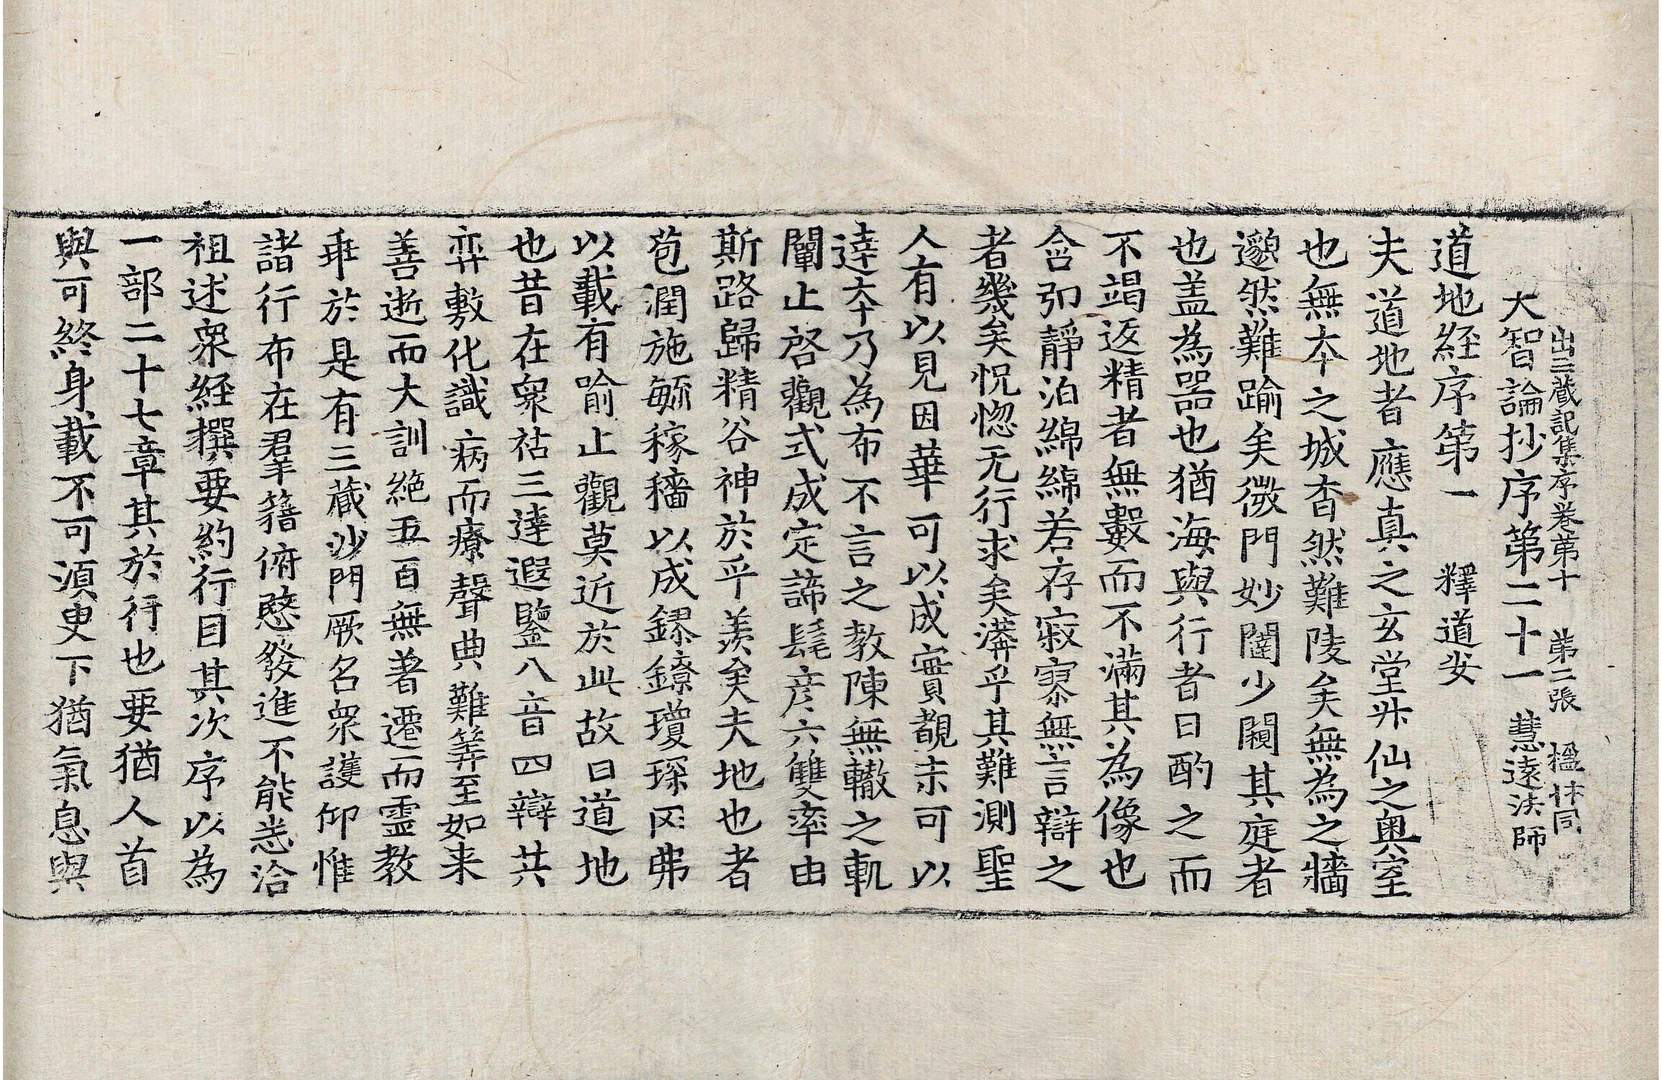 出三蔵記集序卷第十 第二張 楹 怀同
大智論抄序第二十一 慧遠法師
道地経序第一 釋道安
夫道地者應真之玄堂升仙之奥室
也無本之城杳然難陵矣無為之牆
邈然難踰矣微門妙闥少闚其庭者
也盖為器也猶海與行者日酌之而
不竭返精者無數而不滿其為像也
含弘靜泊綿綿若存寂寥無言辯之
者幾矣怳惚无行求矣漭乎其難測聖
人有以見因華可以成實覩末可以
達本乃為布不言之教陳無轍之軌
闡止啓觀式成定諦髦彦六雙率由
斯路歸精谷神於乎羨矣夫地也者
苞潤施毓稼穡以成鏐鐐瓊琛罔弗
以載有喻止觀莫近於此故曰道地
也昔在衆祜三達遐鑒八音四辯共
弈敷化識病而療聲典難筭至如来
善逝而大訓絶五百無著遷而霊教
乖於是有三蔵沙門厥名衆護仰惟
諸行布在羣籍俯愍發進不能悉洽
祖述衆経撰要約行目其次序以為
一部二十七章其於行也要猶人首
與可終身載不可湏臾下猶氣息與